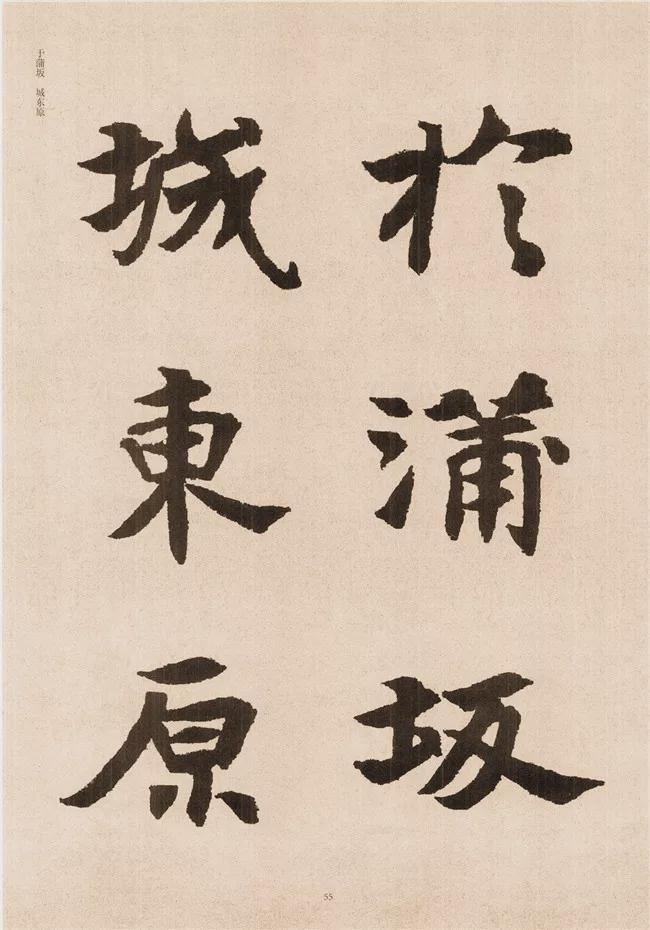 于蒲坂 城东原
於蒲坂
城東原
55